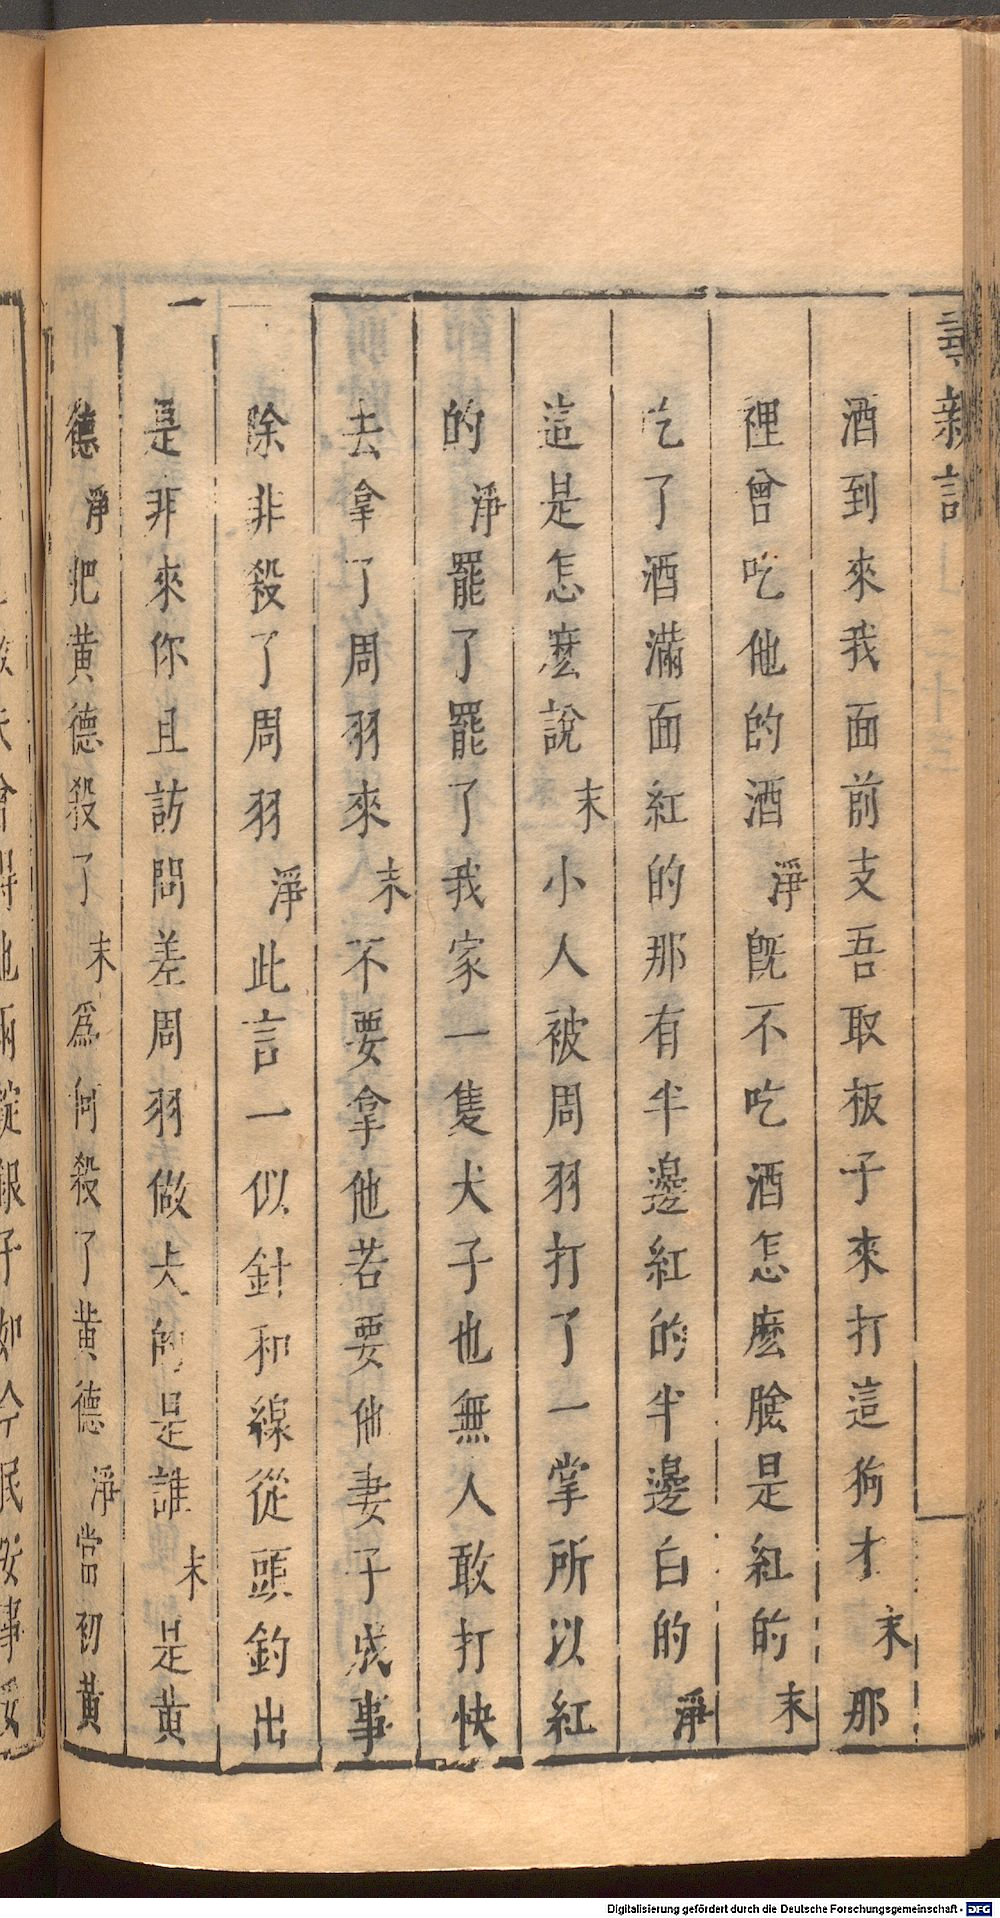 尋親記
酒到來我面前支吾取板子來打這狗才末那
裡曾吃他的酒淨旣不吃酒怎麽臉是紅的末
吃了酒滿面紅的那有半邊紅的半邊白的淨
這是怎麽說末小人被周羽打了一掌所以紅
的淨罷了罷了我家一隻犬子也無人敢打快
去拿了周羽來末不要拿他若要他妻子成事
除非殺了周羽淨此言一似針和線從頭釣出
是非來你且訪問差周羽做夫的是誰末是黄
德淨把黄德殺了末爲何殺了黄德淨當初黃
Digitalisierung gefördert durch die Deutsche Forschungsgemeinschaft - DFG